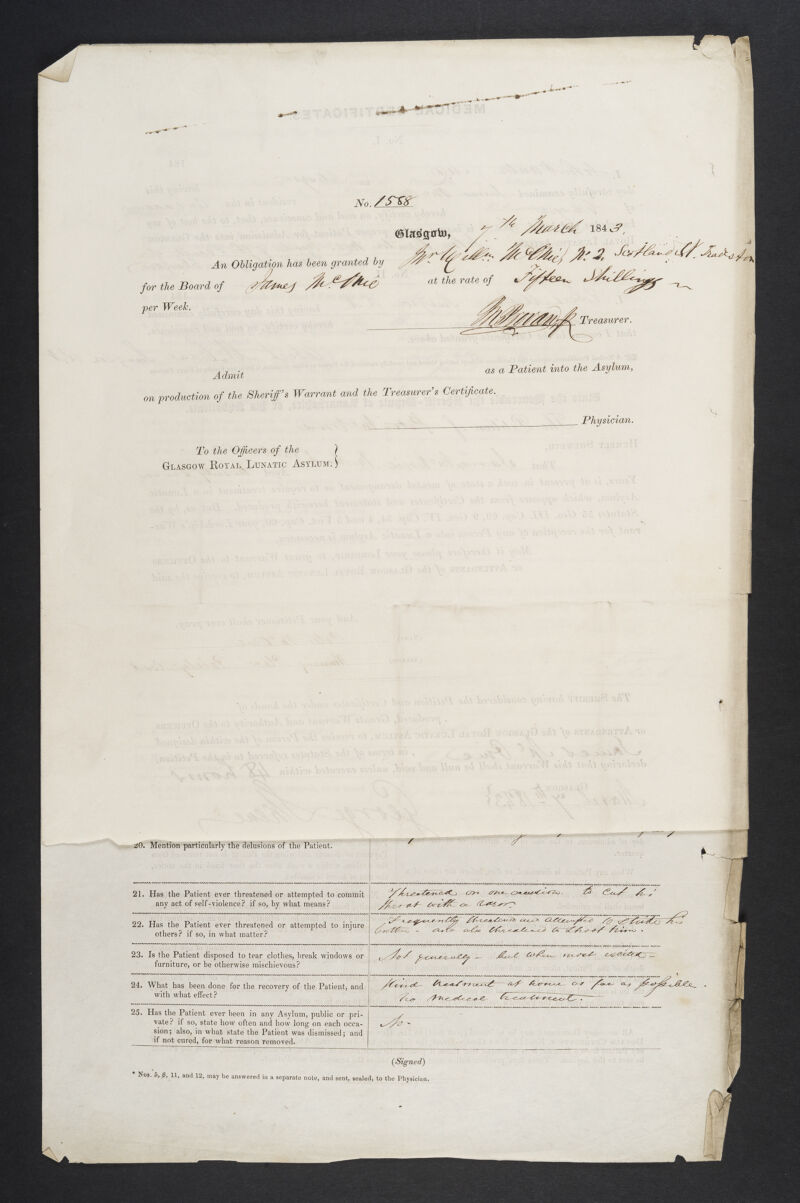 No. 1588
Glasgow, 7th March 1843.
An Obligation has been granted by Mr Willm McPhie, No. 2, Scotland St. Tradeston
for the Board of James McPhie at the rate of Fifteen Shillings
per Week.
Treasurer.
Admit as a Patient into the Asylum,
on production of the Sheriff's Warrant and the Treasurer's Certificate.
Physician.
To the Officers of the
GLASGOW ROYAL LUNATIC ASYLUM.
20. Mention particularly the delusions of the Patient.
21. Has the Patient ever threatened or attempted to commit any act of self-violence? if so, by what means?
Threatened on one occasion to cut his
throat with a razor.
22. Has the Patient ever threatened or attempted to injure others? if so, in what matter?
Frequently threatened and attempted to strike his
brother - and also threatened to shoot him.
23. Is the Patient disposed to tear clothes, break windows or furniture, or be otherwise mischievous?
Not generally - but when most excited -
24. What has been done for the recovery of the Patient, and with what effect?
Kind treatment at home as far as possible.
no medical treatment.
25. Has the Patient ever been in any Asylum, public or private? if so, state how often and how long on each occasion; also, in what state the Patient was dismissed; and if not cured, for what reason removed.
No.
(Signed)
* Nos. 5, 6, 11, and 12, may be answered in a separate note, and sent, sealed, to the Physician.